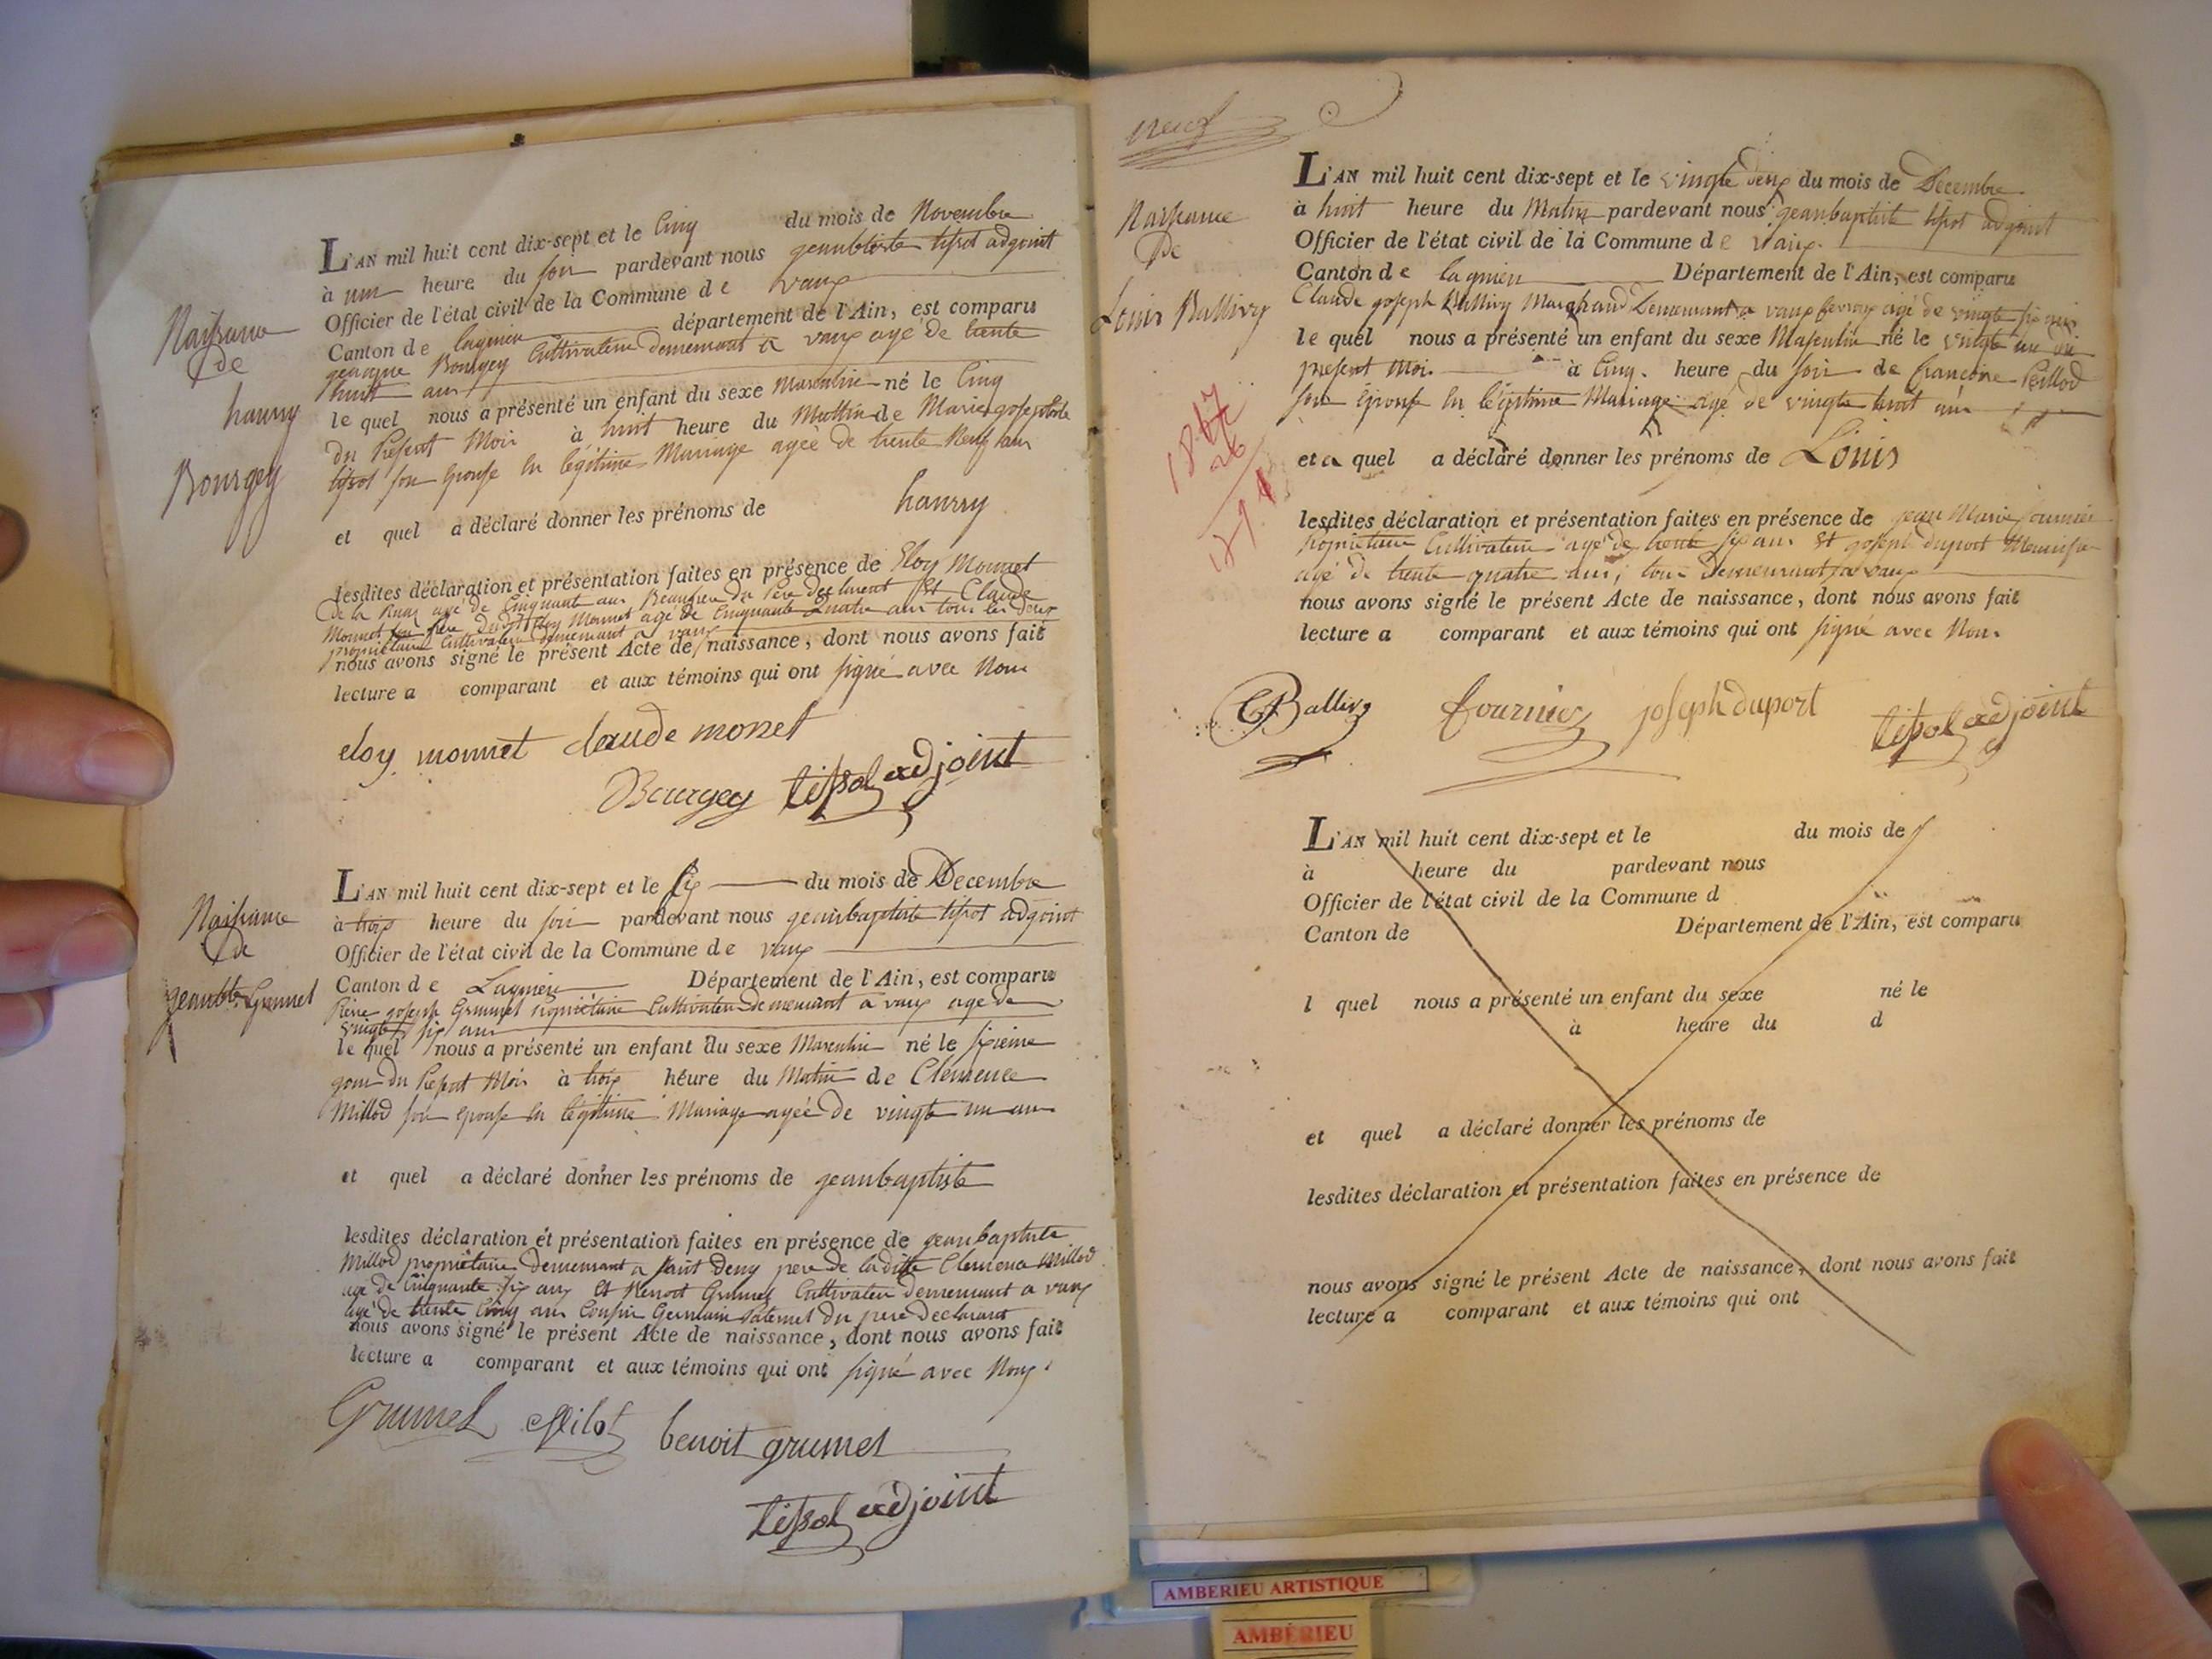 Naissance
de
haurry
Bourgey
L'AN mil huit cent dix-sept et le Cinq du mois de Novembre
à une heure du soir pardevant nous geanbtiste tissot adgoint
Officier de l'état civil de la Commune de vaux
Canton de lagnieu département de l'Ain, est comparu
Bourgey Cultivateur demeurant a vaux agé de trente
huit ans
le quel nous a présenté un enfant du sexe Masculin né le Cinq
du Présent Mois à huit heure du Mattin de Marie gosephte
tissot son Epouse en légitime Mariage agée de trente Neuf ans
et quel a déclaré donner les prénoms de haurry
lesdites déclaration et présentation faites en présence de Eloy Monnet
de la Ruaz agé de Cinquante ans Beaufrere du Père declarent Et Claude
Monnet frere dudit Eloy Monnet agé de Cinquante Quatre ans tous les deux
propriétaire Cultivateur demeurant a vaux
nous avons signé le présent Acte de naissance, dont nous avons fait
lecture a comparant et aux témoins qui ont signé avec Nous
eloy monnet claude monet
Bourgey tissot adjoint
Naissance
de
geanbte Grumet
L'AN mil huit cent dix-sept et le six du mois de Decembre
à trois heure du soir pardevant nous geanbaptiste tissot adgoint
Officier de l'état civil de la Commune de vaux
Canton de Lagnieu Département de l'Ain, est comparu
Pierre goseph Grumet propriétaire Cultivateur demeurant a vaux agé de
vingt six ans
le quel nous a présenté un enfant du sexe Masculin né le sixieme
gour du Présent Mois à trois heure du Matin de Clémence
Millod son epouse en légitime Mariage agée de vingt un ans
et quel a déclaré donner les prénoms de geanbaptiste
lesdites déclaration et présentation faites en présence de geanbaptiste
Millod propriétaire demeurant a saint Deny pere de laditte Clémence Millod
agé de Cinquante six ans Et Benoit Grumet Cultivateur demeurant a vaux
agé de trente Cinq ans Cousin Germain Paternel du pere Declarant
nous avons signé le présent Acte de naissance, dont nous avons fait
lecture a comparant et aux témoins qui ont signé avec Nous
Grumet Milot benoit grumet
tissot adjoint
neuf
Naissance
De
Louis Ballivy
L'AN mil huit cent dix-sept et le vingte deux du mois de Decembre
à huit heure du Matin pardevant nous geanbaptiste tissot adgoint
Officier de l'état civil de la Commune de vaux
Canton de lagnieu Département de l'Ain, est comparu
Claude goseph Ballivy Marchand Demeurant a vaux agé de vingte six ans
le quel nous a présenté un enfant du sexe Masculin né le vingte un du
présent Mois à Cinq heure du soir de francoise Peillod
son Epouse en légitime Mariage agé de vingte huit ans
et a quel a déclaré donner les prénoms de Louis
lesdites déclaration et présentation faites en présence de jean Marie fournier
propriétaire Cultivateur agé de trente six ans Et goseph duport Menuisier
agé de trente quatre ans, tous Demeurant a vaux
nous avons signé le présent Acte de naissance, dont nous avons fait
lecture a comparant et aux témoins qui ont signé avec Nous
Ballivy fournier joseph duport tissot adjoint
L'AN mil huit cent dix-sept et le du mois de
à heure du pardevant nous
Officier de l'état civil de la Commune d
Canton de Département de l'Ain, est comparu
l quel nous a présenté un enfant du sexe né le
à heure du d
et quel a déclaré donner les prénoms de
lesdites déclaration et présentation faites en présence de
nous avons signé le présent Acte de naissance, dont nous avons fait
lecture a comparant et aux témoins qui ont
AMBERIEU ARTISTIQUE
AMBÉRIEU